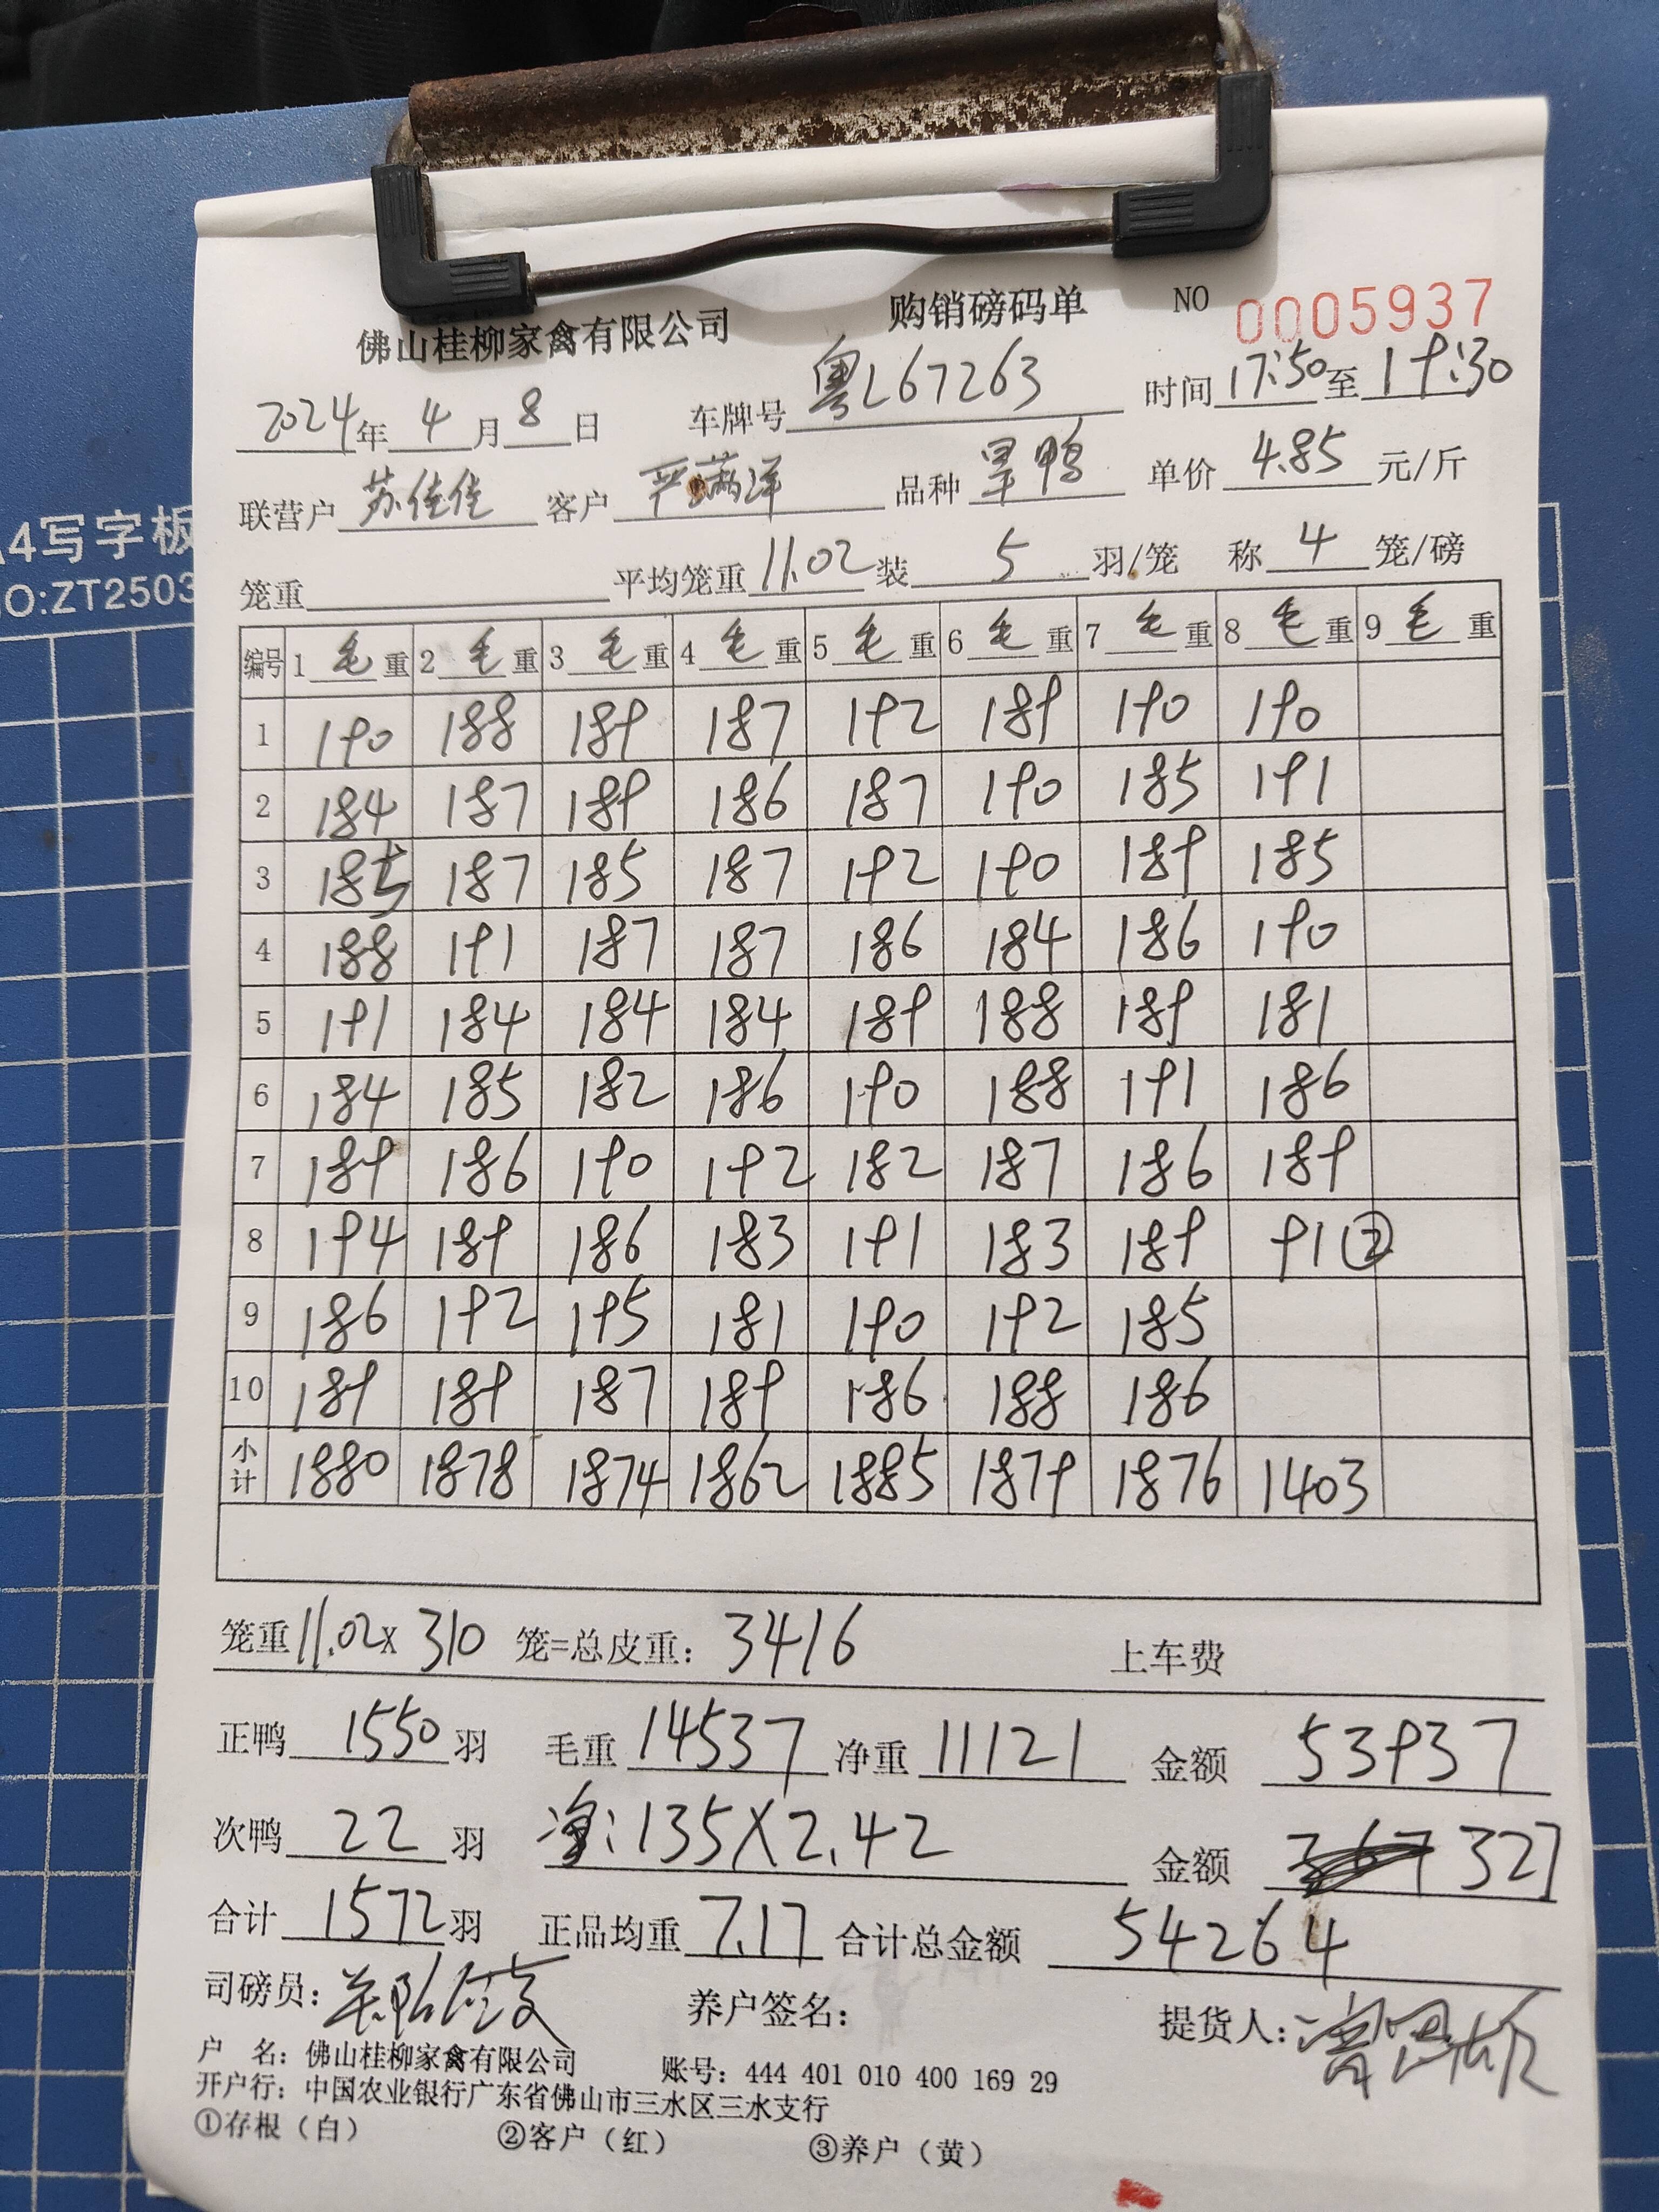 佛山桂柳家禽有限公司 购销磅码单 NO 0005937
2024年 4月 8日 车牌号 粤L67263 时间 17:50 至 19:30
联营户 苏佳佳 客户 严满洋 品种 旱鸭 单价 4.85 元/斤
笼重 平均笼重 11.02 装 5 羽/笼 称 4 笼/磅
编号 1 毛重 2 毛重 3 毛重 4 毛重 5 毛重 6 毛重 7 毛重 8 毛重 9 毛重
1 190 188 189 187 192 189 190 190
2 184 187 189 186 187 190 185 191
3 185 187 185 187 192 190 189 185
4 188 191 187 187 186 184 186 190
5 191 184 184 184 189 188 189 181
6 184 185 182 186 190 188 191 186
7 189 186 190 192 182 187 186 189
8 194 189 186 183 191 183 189 91②
9 186 192 195 181 190 192 185
10 189 189 187 189 186 188 186
小计 1880 1878 1874 1862 1885 1879 1876 1403
笼重 11.02 x 310 笼=总皮重: 3416 上车费
正鸭 1550 羽 毛重 14537 净重 11121 金额 53937
次鸭 22 羽 净: 135X2.42 金额 327
合计 1572 羽 正品均重 7.17 合计总金额 54264
司磅员: 养户签名: 提货人:
户 名: 佛山桂柳家禽有限公司 账号: 444 401 010 400 169 29
开户行: 中国农业银行广东省佛山市三水区三水支行
①存根(白) ②客户(红) ③养户(黄)
A4写字板
NO:ZT2503